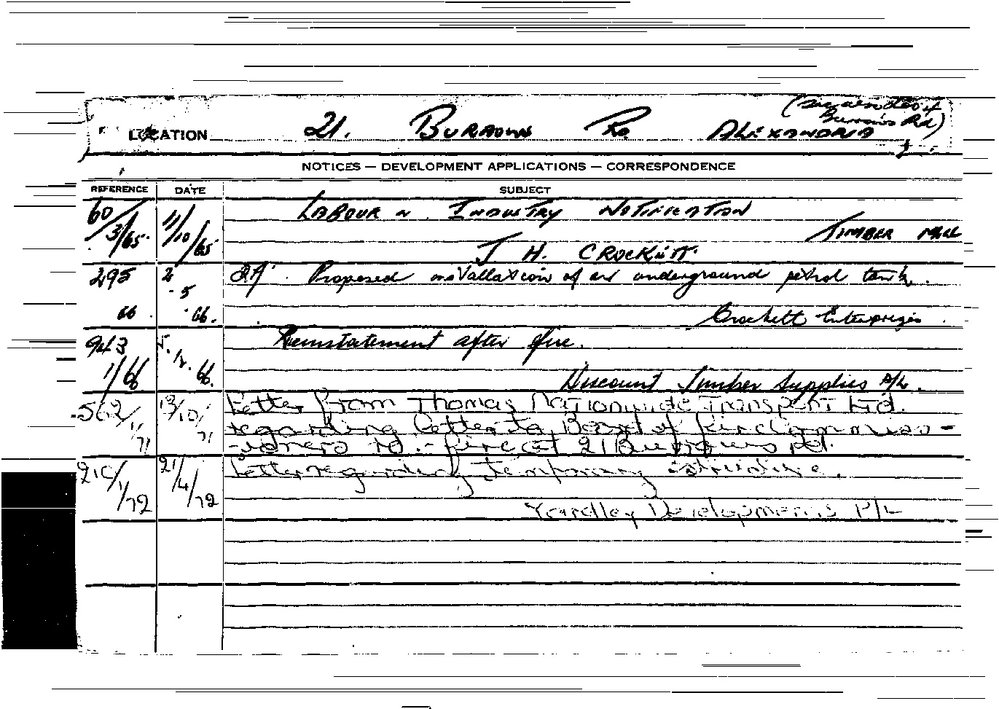 LOCATION 21. BURROWS Rd ALEXANDRIA
Burrows Rd)
NOTICES — DEVELOPMENT APPLICATIONS — CORRESPONDENCE
REFERENCE DATE SUBJECT
60/3/65. 11/10/65 LABOUR & INDUSTRY NOTIFICATION
TIMBER MILL
J. H. CROCKETT.
295 66. 2.5.66. Proposed installation of an underground petrol tank.
Crockett Enterprizes.
943 1/66 66. Reinstatement after fire.
Discount Timber Supplies P/L.
/71 /10/71 Letter from Thomas Nationwide Transport Ltd.
regarding letter to Board of fire commiss-
-ioners re - fire at 21 Burrows Rd.
/1/72 21/4/72 Letter regarding temporary structure.
Yardley Developments P/L